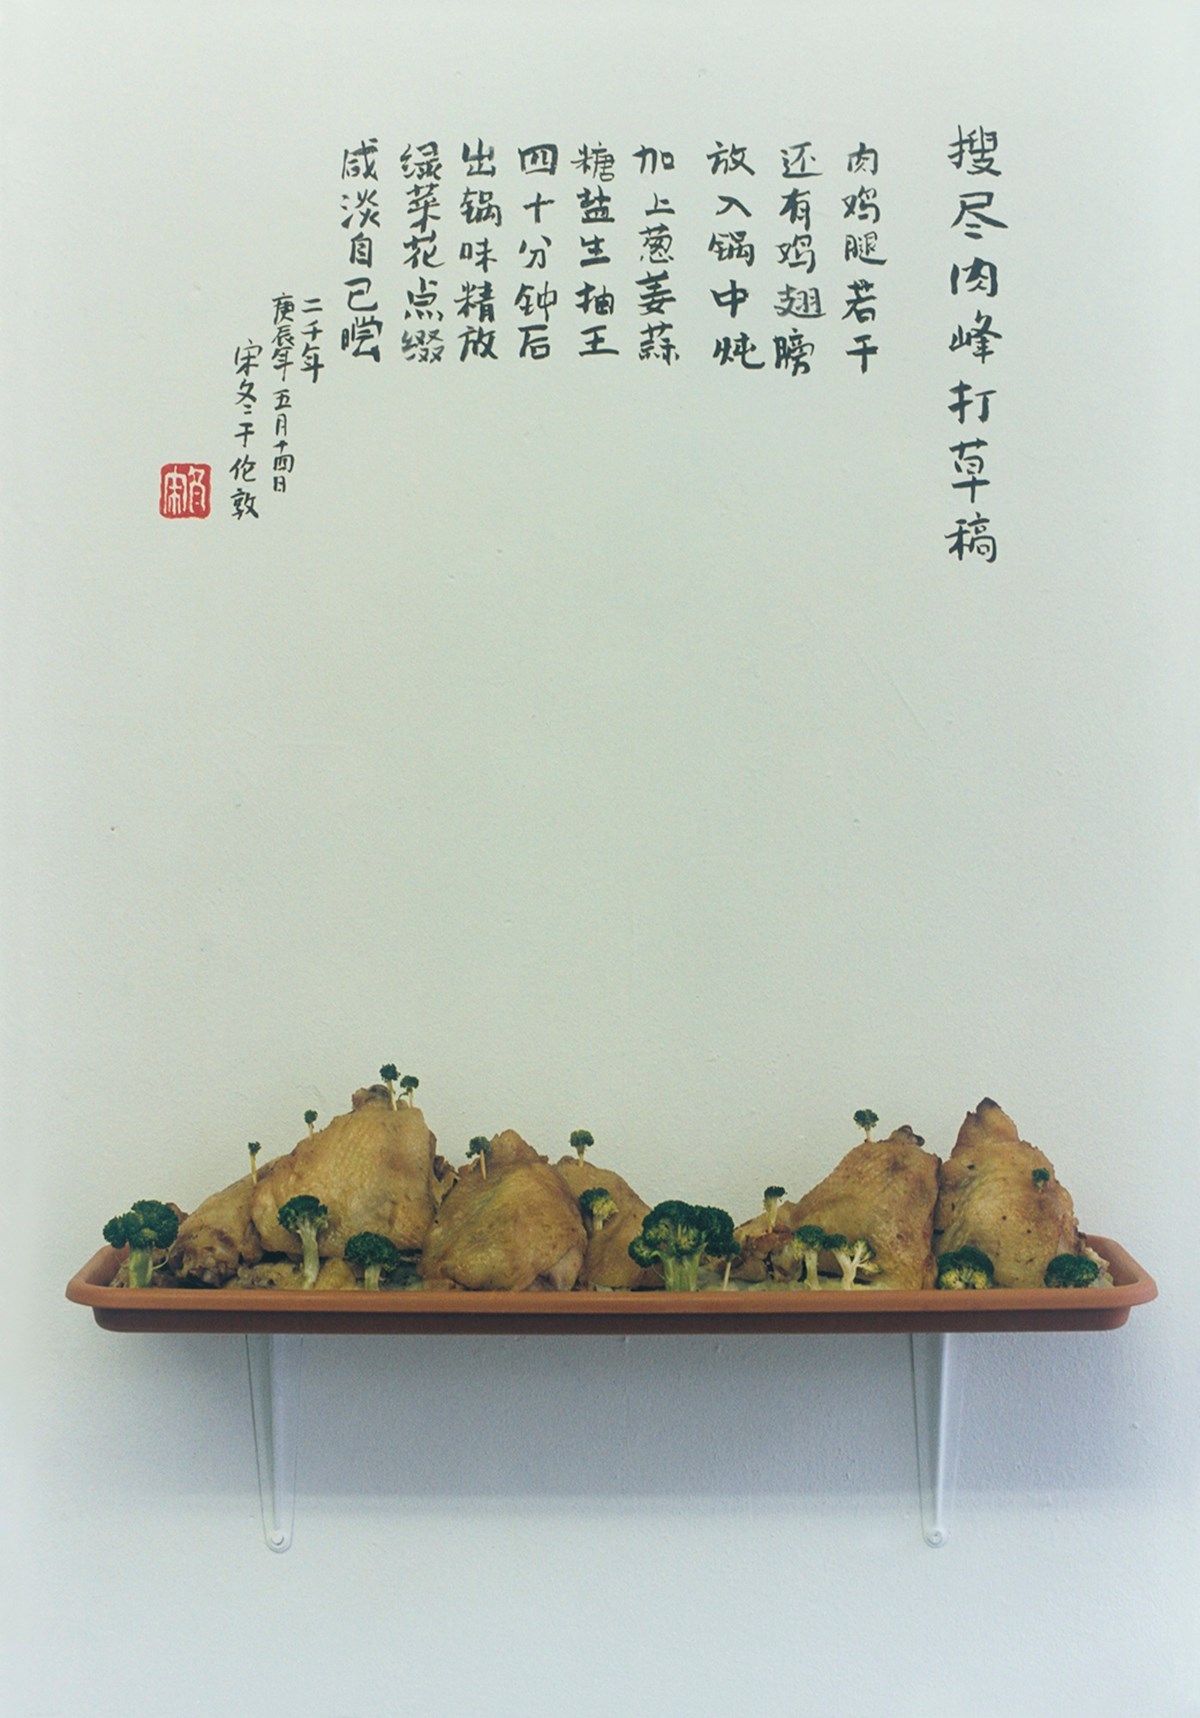 搜尽肉峰打草稿
肉鸡腿若干
还有鸡翅膀
放入锅中炖
加上葱姜蒜
糖盐生抽王
四十分钟后
出锅味精放
绿菜花点缀
咸淡自己尝
二千年
庚辰年五月十四日
宋冬于伦敦
宋冬